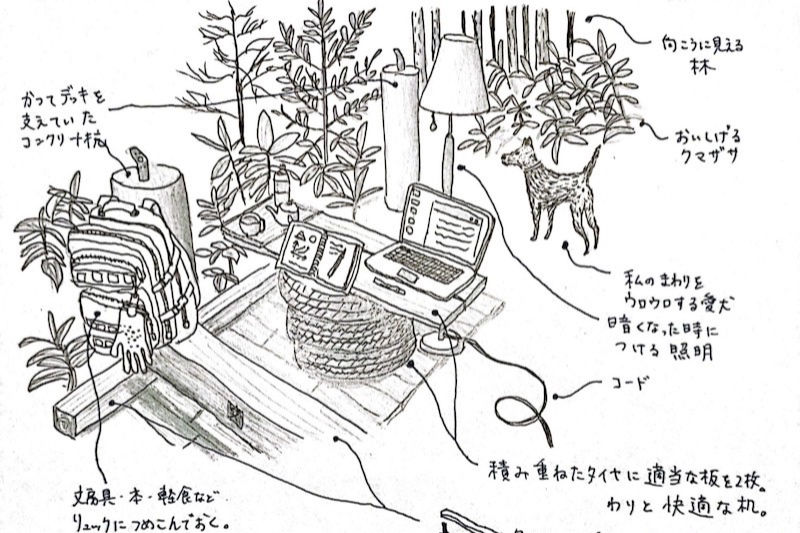 向こうに見える
林
かってデッキを
支えていた
コンクリート杭
おいしげる
クマザサ
私のまわりを
ウロウロする愛犬
暗くなった時に
つける照明
コード
積み重ねたタイヤに適当な板を2枚。
わりと快適な机。
文房具・本・軽食など
リュックにつめこんでおく。